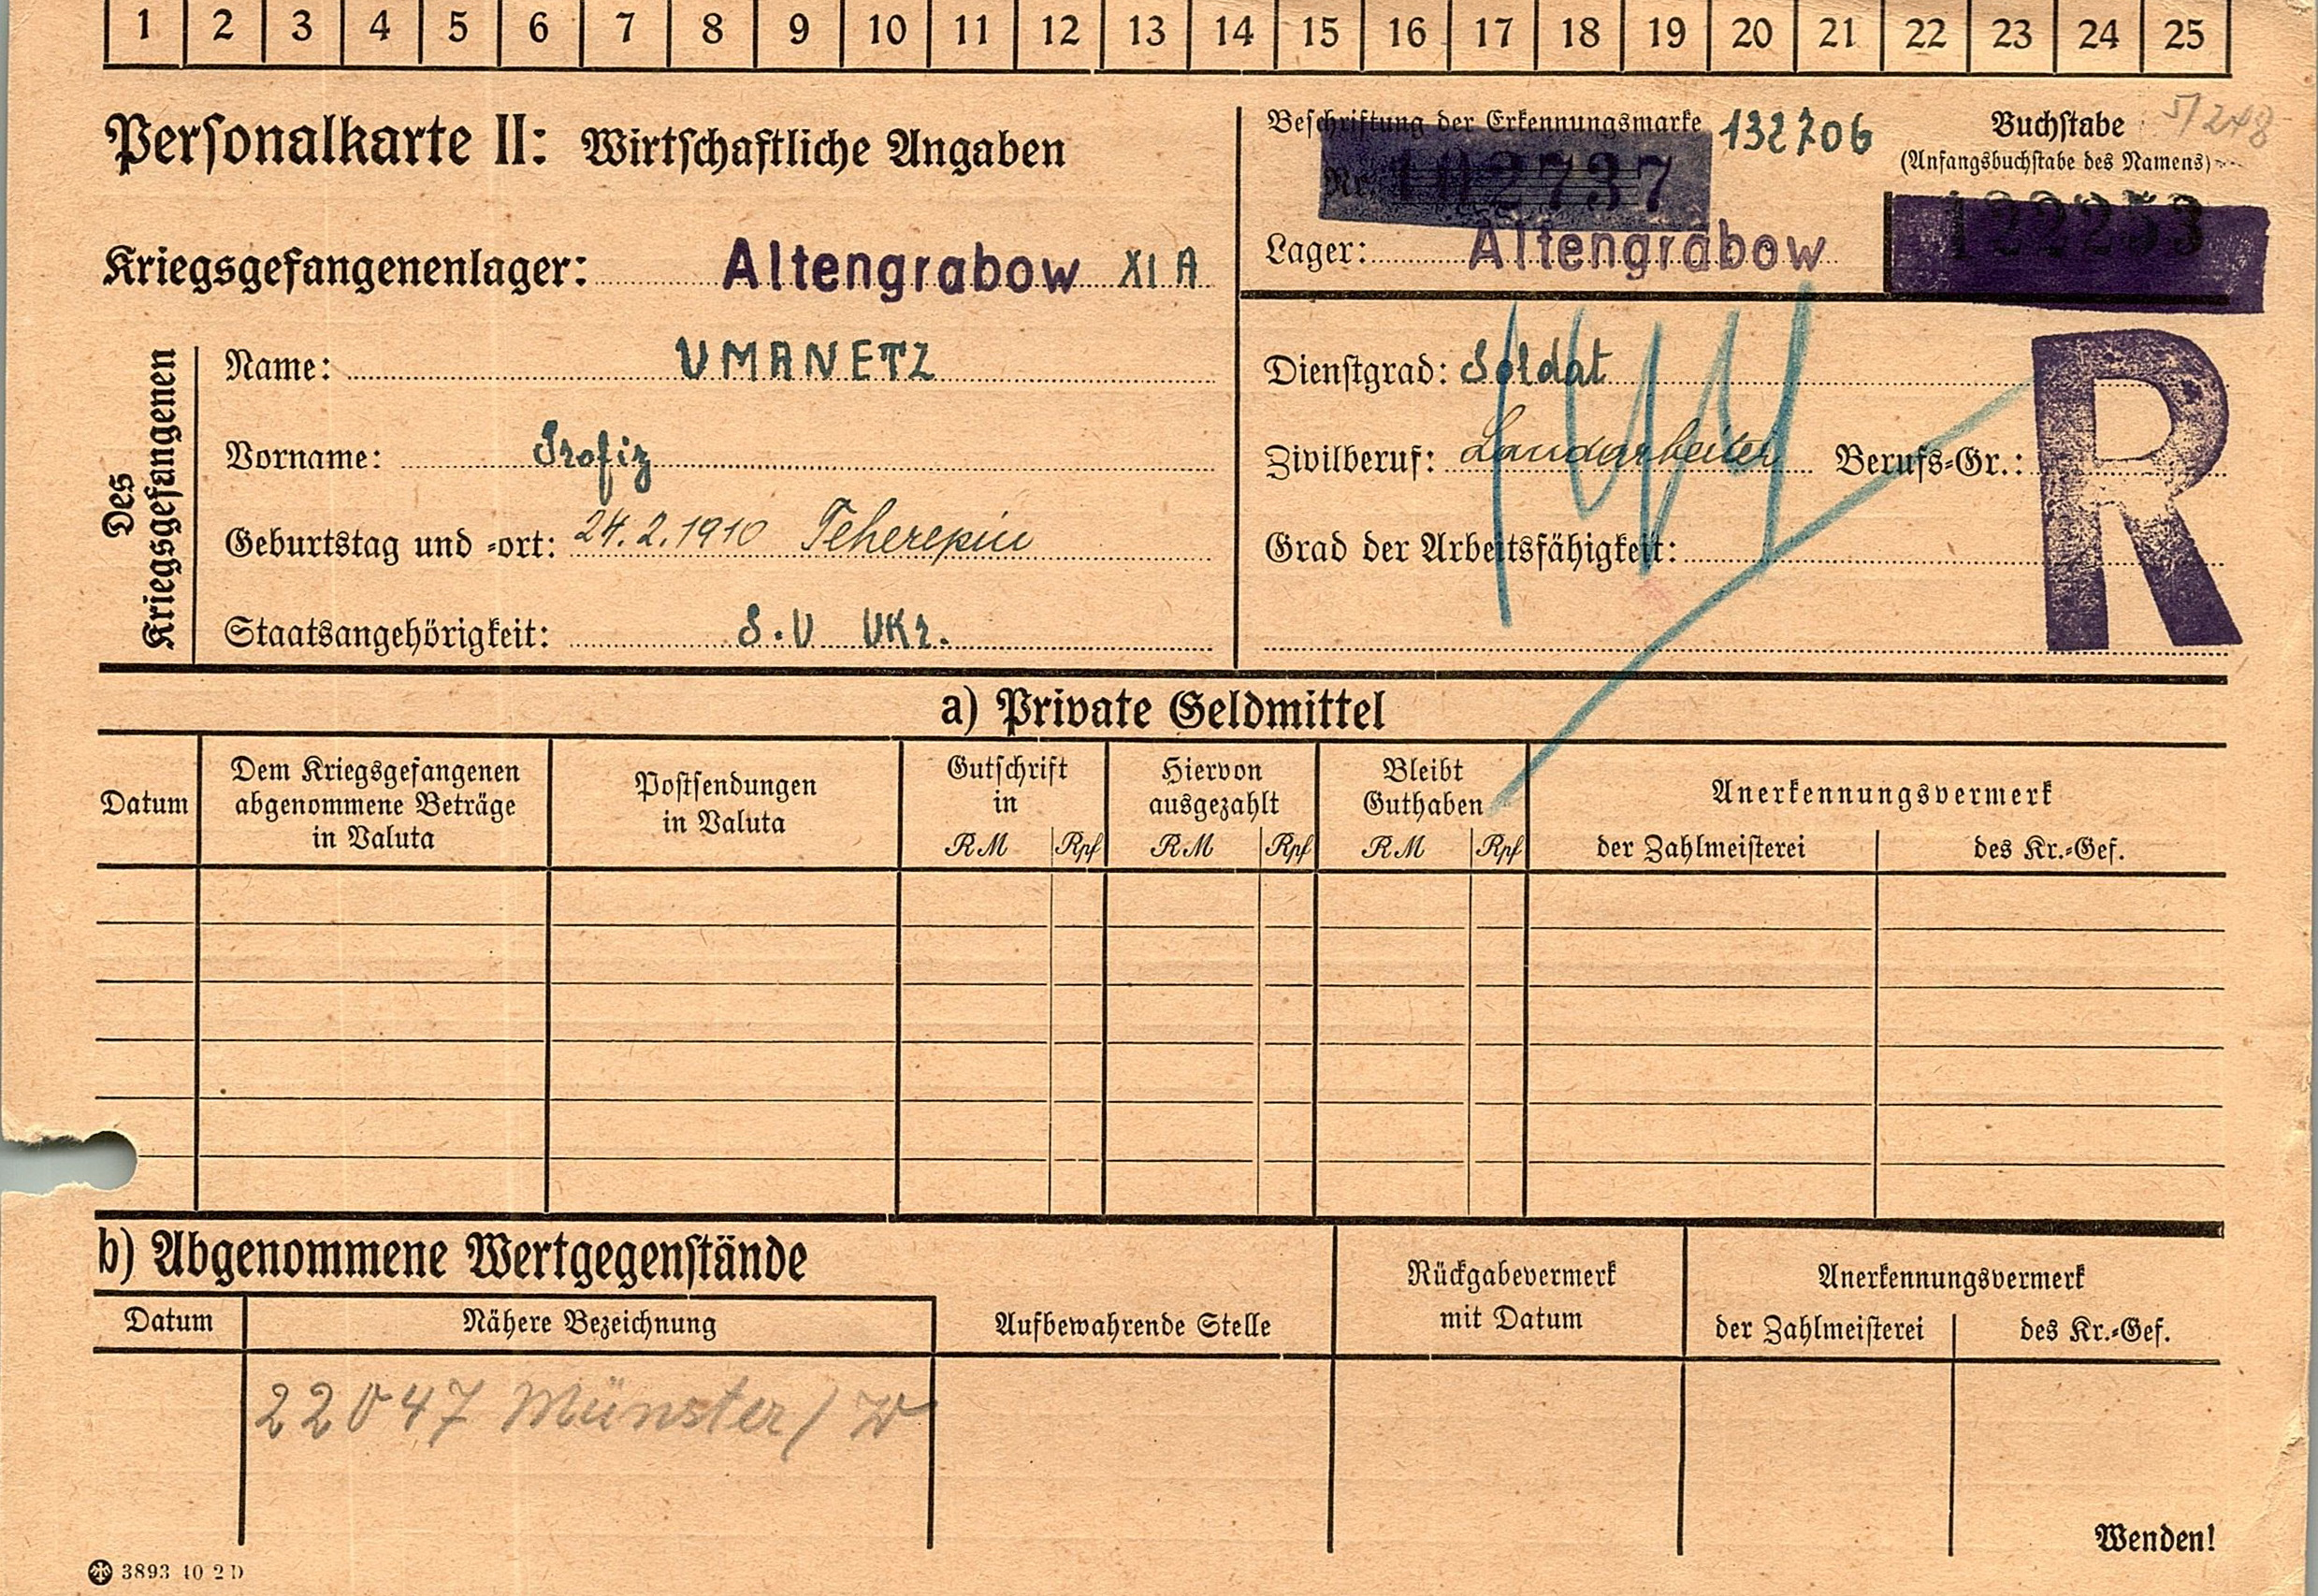 1 2 3 4 5 6 7 8 9 10 11 12 13 14 15 16 17 18 19 20 21 22 23 24 25
Personalkarte II: Wirtschaftliche Angaben
Beschriftung der Erkennungsmarke 132706
Nr. 102737
Buchstabe 5/248
(Anfangsbuchstabe des Namens)
122253
Kriegsgefangenenlager: Altengrabow XI A
Lager: Altengrabow
Des Kriegsgefangenen
Name: UMANETZ
Vorname: Trofiz
Geburtstag und -ort: 24.2.1910 Tcherepin
Staatsangehörigkeit: S.U UKr.
Dienstgrad: Soldat
Zivilberuf: Landarbeiter Berufs-Gr.:
Grad der Arbeitsfähigkeit:
R
a) Private Geldmittel
Datum
Dem Kriegsgefangenen
abgenommene Beträge
in Valuta
Postsendungen
in Valuta
Gutschrift
in
RM Rpf
Hiervon
ausgezahlt
RM Rpf
Bleibt
Guthaben
RM Rpf
Anerkennungsvermerk
der Zahlmeisterei des Kr.-Gef.
b) Abgenommene Wertgegenstände
Datum Nähere Bezeichnung
Aufbewahrende Stelle
Rückgabevermerk
mit Datum
Anerkennungsvermerk
der Zahlmeisterei des Kr.-Gef.
22047 Münster/W
Wenden!
3893 40 2 D